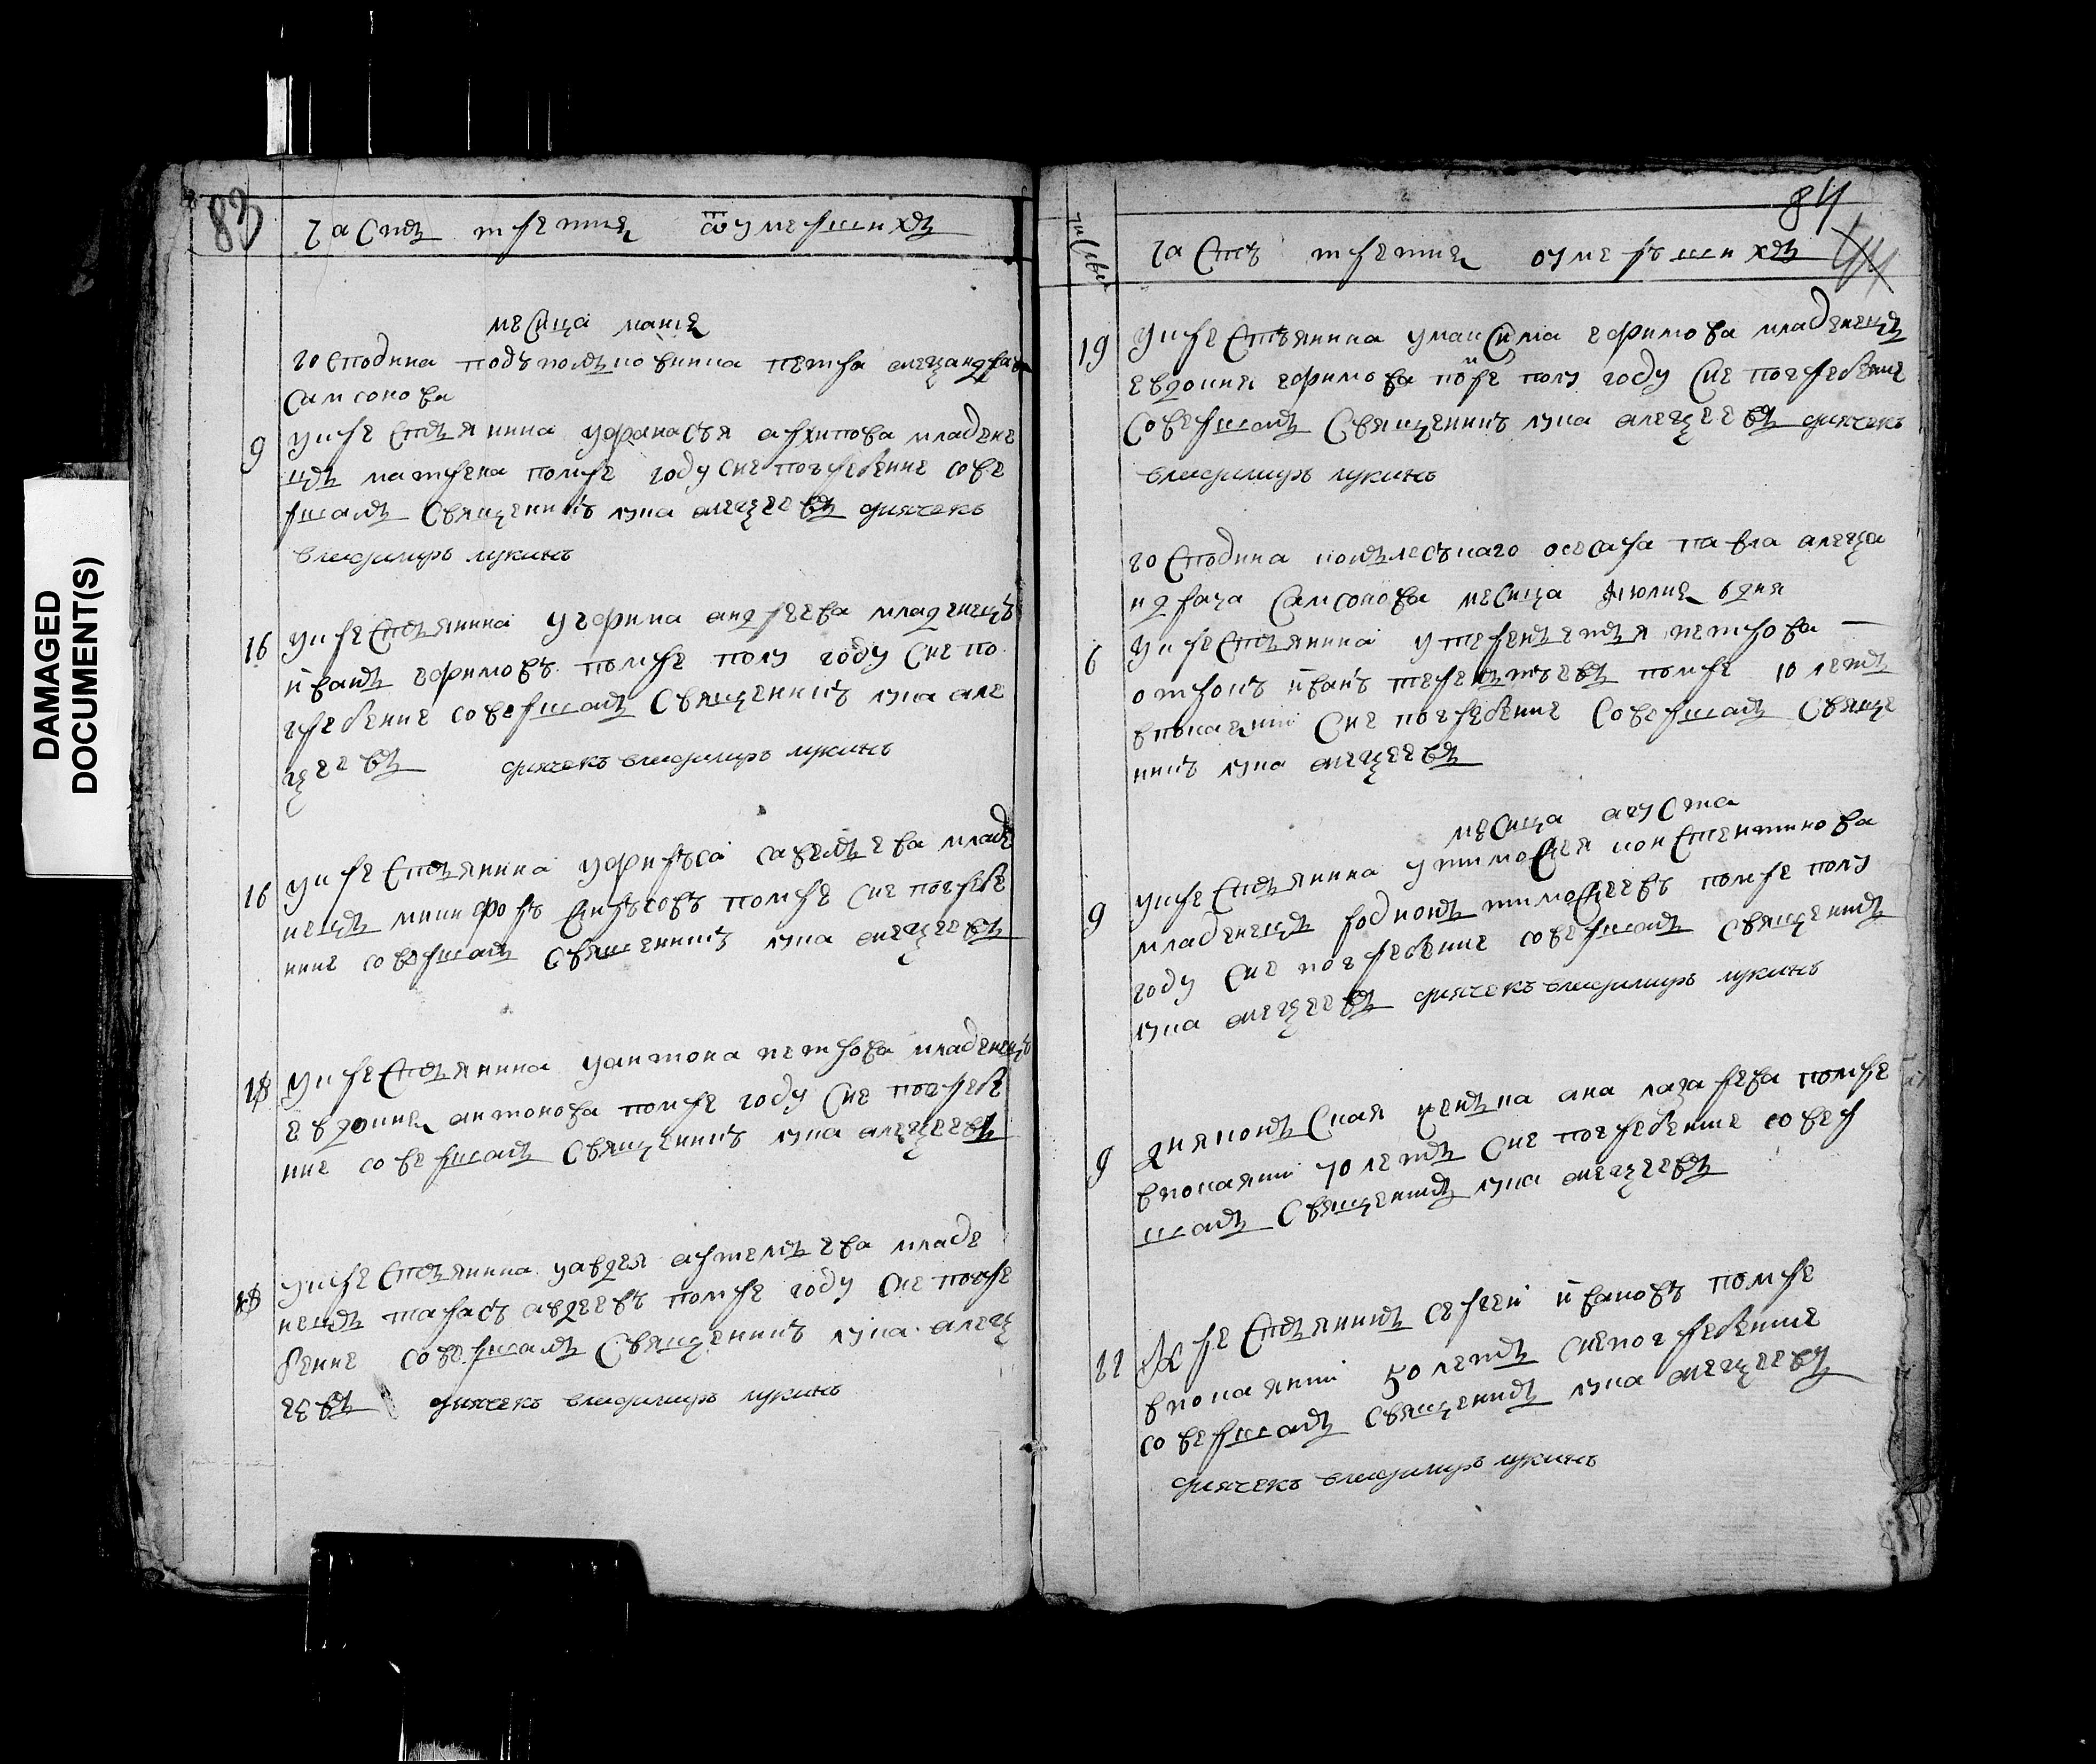 DAMAGED
DOCUMENT(S)
83
часть третия оумерших
месица маия
господина подъполковника петра алеѯандрава
самсонова
9 укрестьянина уфанасъя архипова младене
цъ матрена помре году сие погребение сове
ршалъ священникъ лука алеѯеевъ диячекъ
владимиръ лукинъ
16 укрестьянина уефима андреева младенецъ
иванъ ефимовъ помре полу году сие по
гребение совершалъ священникъ лука але
ѯеевъ диячекъ владимиръ лукинъ
16 укрестьянина уфирьса савельева младе
нецъ никифоръ фирьсовъ помре сие погребе
ние совершалъ священникъ лука алеѯеевъ
18 укрестьянина уантона петрова младенецъ
евдокия антонова помре году сие погребе
ние совершалъ священникъ лука алеѯеевъ
18 укрестьянина уавдея артемьева младе
нецъ тарасъ авдеевъ помре году сие погре
бение совершалъ священникъ лука алеѯ
еевъ диячекъ владимиръ лукинъ
84
44
числа
часть третия оумеръшихъ
19 укрестьянина умаксима ефимова младенецъ
евдокия ефимова помре полу году сие погребение
совершалъ священникъ лука алеѯеевъ диячекъ
владимиръ лукинъ
господина полъесънаго осесара павла алеѯа
ндрача самсонова месица июлия 6 дня
6 укрестьянина утерентетя петрова
отрокъ иванъ терентьевъ помре 10 летъ
впокаянии сие погребение совершалъ свяще
никъ лука алеѯеевъ
месица августа
9 укрестьянина утимофея констентинова
младенецъ родионъ тимофеевъ помре полу
году сие погребение совершалъ священикъ
лука алеѯеевъ диячекъ владимиръ лукинъ
9 дияконъская женъка ана лазарева помре
впокаянии 70 летъ сие погребение совер
шалъ священикъ лука алеѯеевъ
22 крестьянинъ сергей ивановъ помре
впокаянии 50 летъ сие погребение
совершалъ священикъ лука алеѯеевъ
диячекъ владимиръ лукинъ